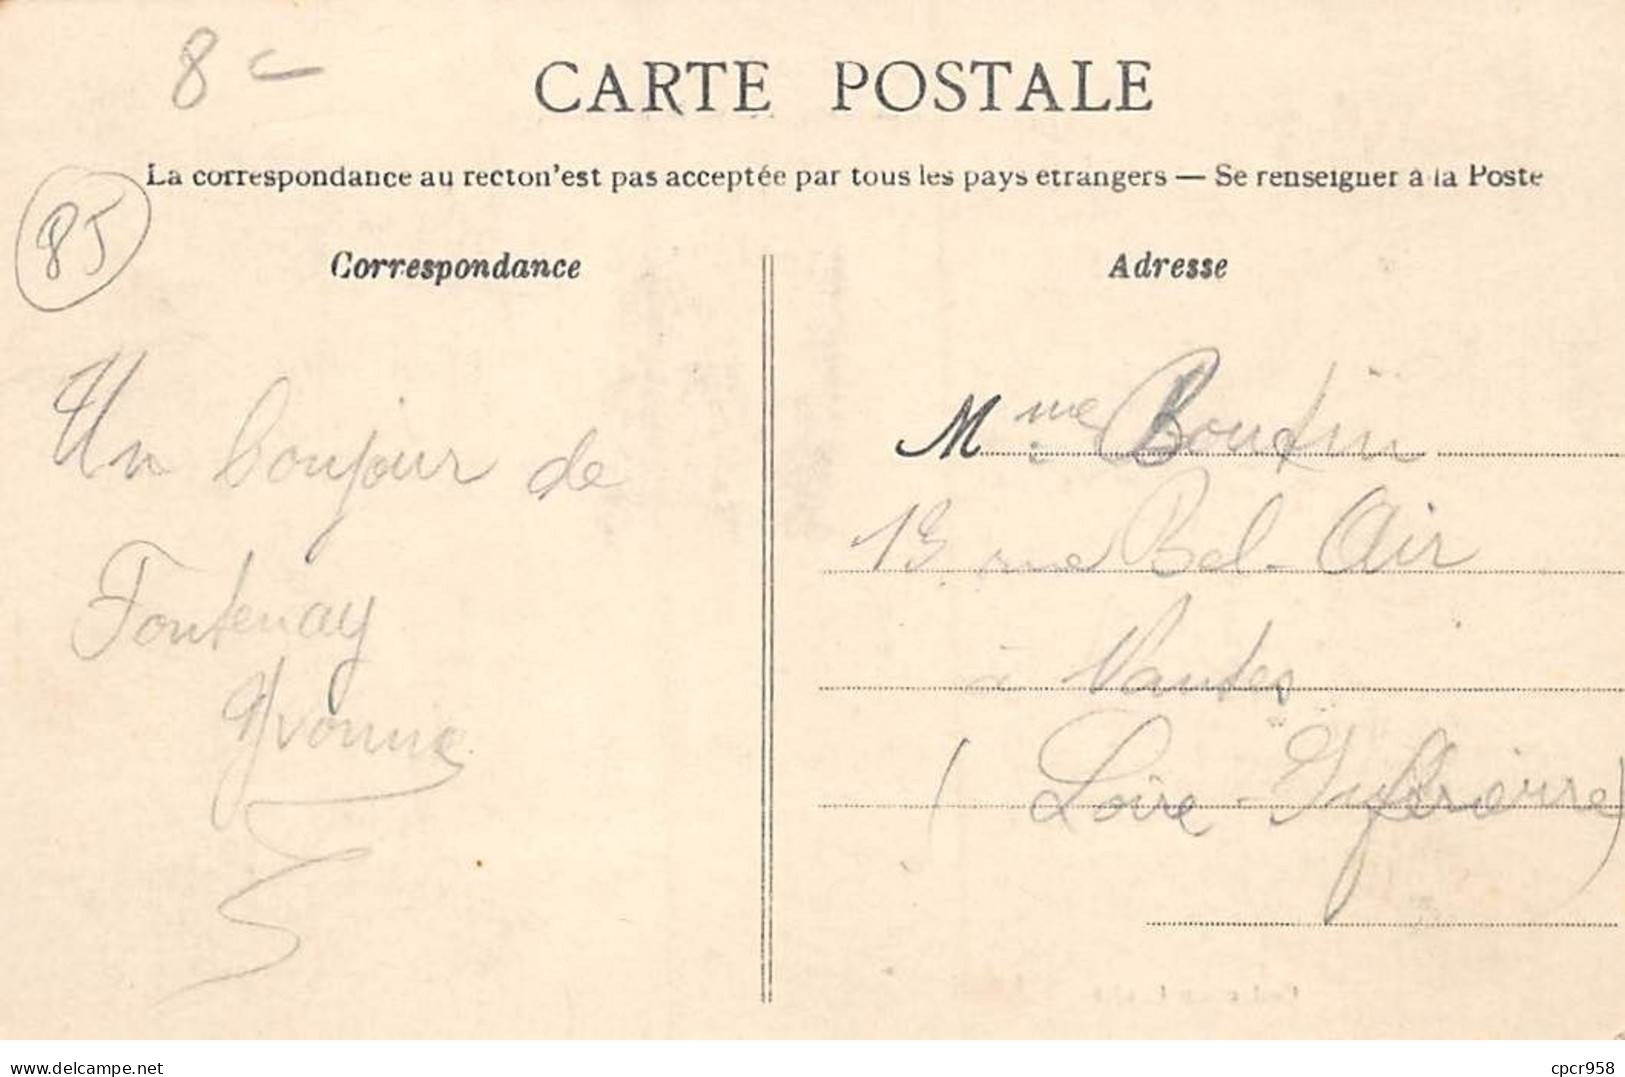 8 c
CARTE POSTALE
La correspondance au recto n'est pas acceptée par tous les pays etrangers — Se renseigner à la Poste
85
Correspondance
Un bonjour de
Fontenay
Yvonne
Adresse
Mme Boutin
13 rue Bel-Air
à Nantes
(Loire-Inférieure)
www.delcampe.net
cpcr958